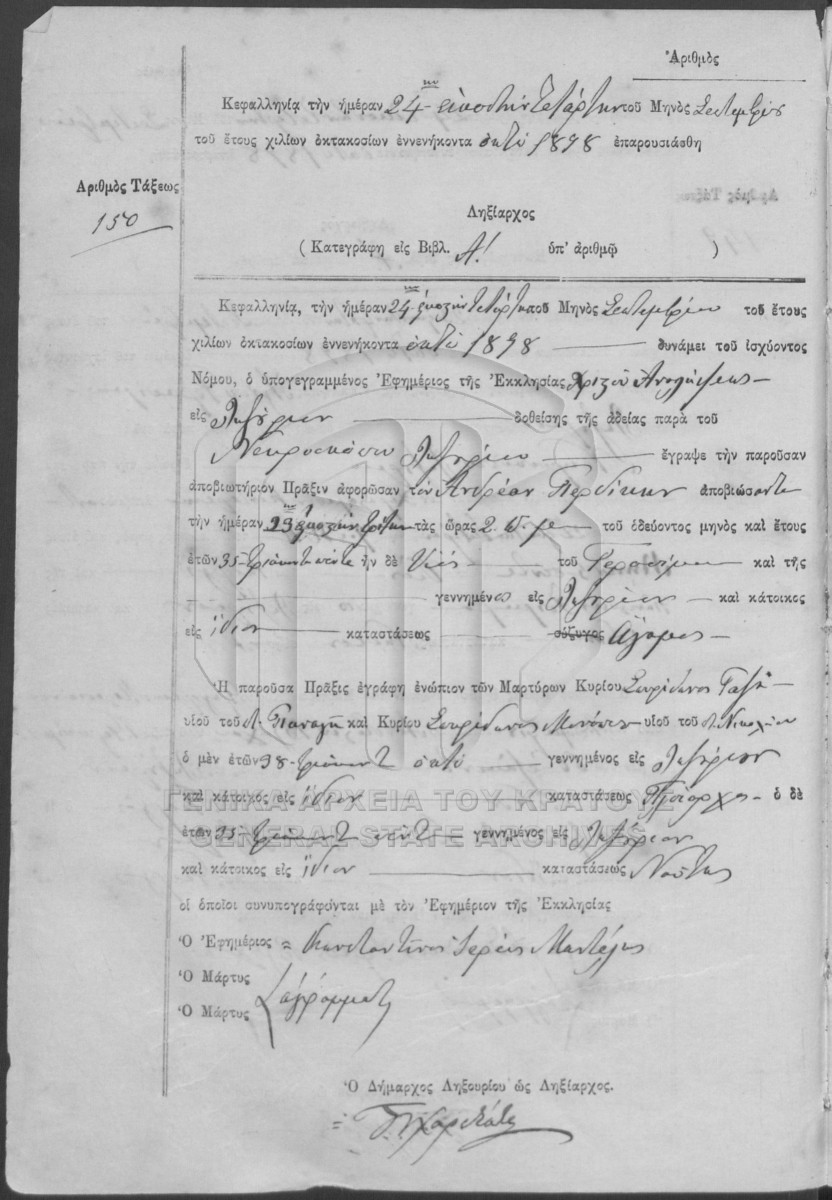 Ἀριθμὸς
Κεφαλληνίᾳ τὴν ἡμέραν 24 εἰκοστὴν τετάρτην τοῦ Μηνὸς Σεπτεμβρίου
τοῦ ἔτους χιλίων ὀκτακοσίων ἐννενήκοντα ὀκτὼ 1898 ἐπαρουσιάσθη
Ἀριθμὸς Τάξεως
150
Ληξίαρχος
( Κατεγράφη εἰς Βιβλ. Α! ὑπ' ἀριθμῷ )
Κεφαλληνίᾳ, τὴν ἡμέραν 24 εἰκοστὴν τετάρτην τοῦ Μηνὸς Σεπτεμβρίου τοῦ ἔτους
χιλίων ὀκτακοσίων ἐννενήκοντα ὀκτὼ 1898 δυνάμει τοῦ ἰσχύοντος
Νόμου, ὁ ὑπογεγραμμένος Ἐφημέριος τῆς Ἐκκλησίας Ἀναλήψεως
εἰς Ληξούριον δοθείσης τῆς ἀδείας παρὰ τοῦ
Νεκροσκόπου Ληξουρίου ἔγραψε τὴν παροῦσαν
ἀποβιωτήριον Πρᾶξιν ἀφορῶσαν τὸν Ἀνδρέαν Περδίκην ἀποβιώσαντα
τὴν ἡμέραν 23 εἰκοστὴν τρίτην τὰς ὥρας 2 τοῦ ὁδεύοντος μηνὸς καὶ ἔτους
ἐτῶν 35 τριάκοντα πέντε ἦν δὲ υἱὸς τοῦ Γερασίμου καὶ τῆς
γεννημένο εἰς Ληξούριον καὶ κάτοικος
εἰς ἴδιον καταστάσεως σύζυγος Ἄγαμος
Ἡ παροῦσα Πρᾶξις ἐγράφη ἐνώπιον τῶν Μαρτύρων Κυρίου Σπυρίδωνος
υἱοῦ τοῦ Παναγῆ καὶ Κυρίου Σπυρίδωνος υἱοῦ τοῦ Νικολάου
ὁ μὲν ἐτῶν 38 τριάκοντ ὀκτὼ γεννημένος εἰς Ληξούριον
καὶ κάτοικος εἰς ἴδιον καταστάσεως Πλοίαρχος ὁ δὲ
ΓΕΝΙΚΑ ΑΡΧΕΙΑ ΤΟΥ ΚΡΑΤΟΥΣ
GENERAL STATE ARCHIVES
ἐτῶν 35 τριάκοντ πέντε γεννημένος εἰς Ληξούριον
καὶ κάτοικος εἰς ἴδιον καταστάσεως Ναύτης
οἱ ὁποῖοι συνυπογράφονται μὲ τὸν Ἐφημέριον τῆς Ἐκκλησίας
Ὁ Ἐφημέριος = Κωνσταντῖνος Ἱερεὺς
Ὁ Μάρτυς
Ὁ Μάρτυς ἀγράμματοι
Ὁ Δήμαρχος Ληξουρίου ὡς Ληξίαρχος.